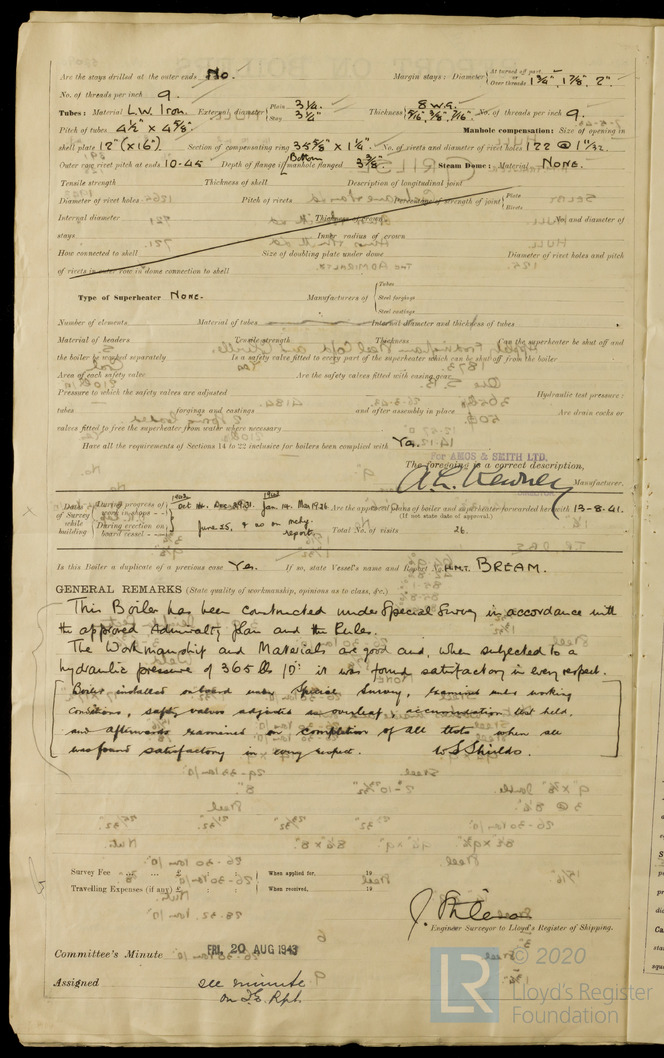 Are the stays drilled at the outer ends No. Margin stays: Diameter { At turned off part, Over threads 1¾", 1⅞", 2"
No. of threads per inch 9.
Tubes: Material L.W. Iron. External diameter { Plain 3¼. Stay 3¼" Thickness { 8 W.G. 5/16", 3/8", 7/16" No. of threads per inch 9.
Pitch of tubes 4½" x 4⅝" Manhole compensation: Size of opening in
shell plate 12" (x16") Section of compensating ring 35⅝ x 1¼" No. of rivets and diameter of rivet holes 122 @ 1 1/32.
Outer row rivet pitch at ends 10.45 Depth of flange if manhole flanged Bottom 3⅝" Steam Dome: Material NONE.
Tensile strength Thickness of shell Description of longitudinal joint
Diameter of rivet holes Pitch of rivets Percentage of strength of joint { Plate Rivets
Internal diameter Thickness of crown No. and diameter of
stays Inner radius of crown
How connected to shell Size of doubling plate under dome Diameter of rivet holes and pitch
of rivets in outer row in dome connection to shell
Type of Superheater NONE. Manufacturers of { Tubes Steel forgings Steel castings
Number of elements Material of tubes Internal diameter and thickness of tubes
Material of headers Tensile strength Thickness Can the superheater be shut off and
the boiler be worked separately Is a safety valve fitted to every part of the superheater which can be shut off from the boiler
Area of each safety valve Are the safety valves fitted with easing gear
Pressure to which the safety valves are adjusted Hydraulic test pressure:
tubes forgings and castings and after assembly in place Are drain cocks or
valves fitted to free the superheater from water where necessary
Have all the requirements of Sections 14 to 22 inclusive for boilers been complied with Yes.
For AMOS & SMITH LTD.
The foregoing is a correct description,
Manufacturer.
DIRECTOR
Dates of Survey while building { During progress of work in shops - - During erection on board vessel - - - Are the approved plans of boiler and superheater forwarded herewith 13-8-41.
(If not state date of approval.)
June 25, & as on mchy. report. Total No. of visits 26.
Is this Boiler a duplicate of a previous case Yes. If so, state Vessel's name and Report No. H.M.T. BREAM.
GENERAL REMARKS (State quality of workmanship, opinions as to class, &c.)
This Boiler has been constructed under Special Survey in accordance with
the approved Admiralty plan and the Rules.
The Workmanship and Materials are good and, when subjected to a
hydraulic pressure of 365 lbs □": it was found satisfactory in every respect.
Boiler installed onboard under Special Survey, examined under working
conditions, safety valves adjusted as overleaf, accumulation test held,
and afterwards examined on completion of all tests when all
was found satisfactory in every respect. W S Shields.
Survey Fee ... ... £ : : When applied for, 19
Travelling Expenses (if any) £ : : When received, 19
Engineer Surveyor to Lloyd's Register of Shipping.
Committee's Minute FRI. 20 AUG 1943
Assigned see minute
on F.E. Rpt.
LR © 2020
Lloyd's Register
Foundation